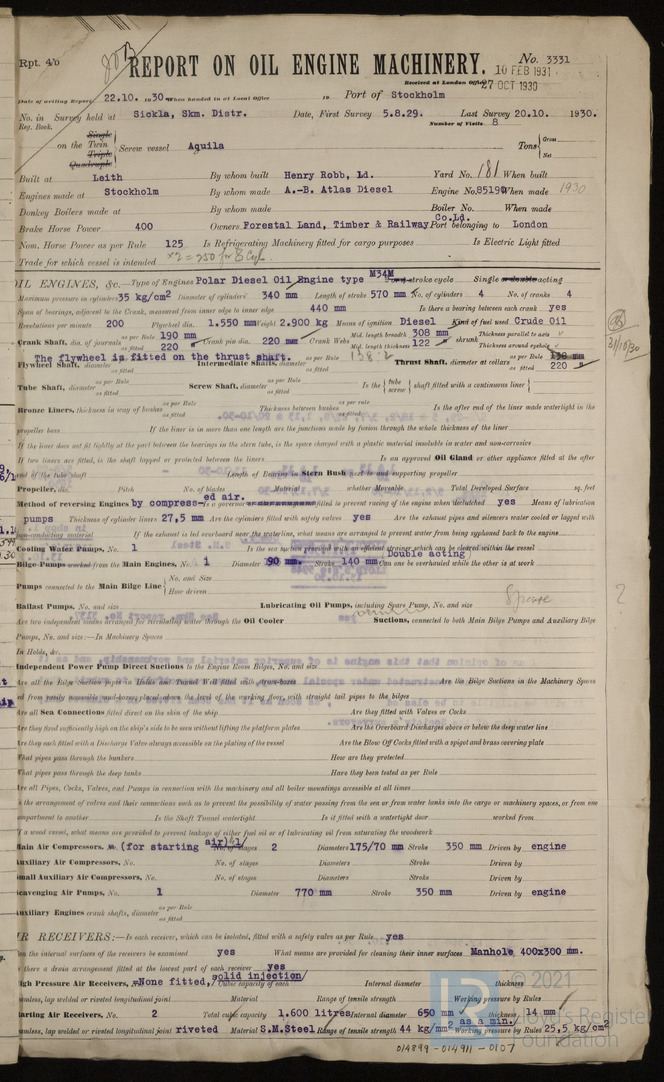 Rpt. 4b
REPORT ON OIL ENGINE MACHINERY. No. 3331
10 FEB 1931
Received at London Office 27 OCT 1930
Date of writing Report 22.10. 1930 When handed in at Local Office 19 Port of Stockholm
No. in Survey held at Sickla, Skm. Distr. Date, First Survey 5.8.29. Last Survey 20.10. 1930.
Reg. Book. Number of Visits 8
on the Single Twin Triple Quadruple Screw vessel Aquila Tons Gross Net
Built at Leith By whom built Henry Robb, Ld. Yard No. 181 When built
Engines made at Stockholm By whom made A.-B. Atlas Diesel Engine No. 85190 When made 1930
Donkey Boilers made at By whom made Boiler No. When made
Brake Horse Power 400 Owners Forestal Land, Timber & Railway Co.Ld. Port belonging to London
Nom. Horse Power as per Rule 125 Is Refrigerating Machinery fitted for cargo purposes Is Electric Light fitted
Trade for which vessel is intended x2 = 250 for 8 Cyl.
OIL ENGINES, &c.—Type of Engines Polar Diesel Oil Engine type M34M stroke cycle Single or double acting
Maximum pressure in cylinders 35 kg/cm2 Diameter of cylinders 340 mm Length of stroke 570 mm No. of cylinders 4 No. of cranks 4
Span of bearings, adjacent to the Crank, measured from inner edge to inner edge 440 mm Is there a bearing between each crank yes
Revolutions per minute 200 Flywheel dia. 1.550 mm Weight 2.900 kg Means of ignition Diesel Kind of fuel used Crude Oil
Crank Shaft, dia. of journals as per Rule 190 mm as fitted 220 Crank pin dia. 220 mm Crank Webs Mid. length breadth 308 mm Mid. length thickness 122 shrunk Thickness parallel to axis Thickness around eyehole
The flywheel is fitted on the thrust shaft.
Flywheel Shaft, diameter as fitted Intermediate Shafts, diameter as per Rule 138.2 as fitted Thrust Shaft, diameter at collars as per Rule 138 mm as fitted 220
Tube Shaft, diameter as per Rule as fitted Screw Shaft, diameter as per Rule as fitted Is the tube screw shaft fitted with a continuous liner
Bronze Liners, thickness in way of bushes as per Rule as fitted Thickness between bushes as per rule as fitted Is the after end of the liner made watertight in the
propeller boss If the liner is in more than one length are the junctions made by fusion through the whole thickness of the liner
If the liner does not fit tightly at the part between the bearings in the stern tube, is the space charged with a plastic material insoluble in water and non-corrosive
If two liners are fitted, is the shaft lapped or protected between the liners Is an approved Oil Gland or other appliance fitted at the after
end of the tube shaft Length of Bearing in Stern Bush next to and supporting propeller
Propeller, dia. Pitch No. of blades Material whether Moveable Total Developed Surface sq. feet
Method of reversing Engines by compressed air. Is a governor fitted to prevent racing of the engine when declutched yes Means of lubrication
pumps Thickness of cylinder liners 27,5 mm Are the cylinders fitted with safety valves yes Are the exhaust pipes and silencers water cooled or lagged with
non-conducting material If the exhaust is led overboard near the waterline, what means are arranged to prevent water from being syphoned back to the engine
Cooling Water Pumps, No. 1 Is the sea suction provided with an efficient strainer which can be cleared within the vessel
Bilge Pumps worked from the Main Engines, No. 1 Diameter 90 mm. Stroke 140 mm Double acting Can one be overhauled while the other is at work
Pumps connected to the Main Bilge Line No. and Size How driven
Ballast Pumps, No. and size Lubricating Oil Pumps, including Spare Pump, No. and size Spare ?
Are two independent means arranged for circulating water through the Oil Cooler Suctions, connected to both Main Bilge Pumps and Auxiliary Bilge
Pumps, No. and size:—In Machinery Spaces
In Holds, &c.
Independent Power Pump Direct Suctions to the Engine Room Bilges, No. and size
Are all the Bilge Suction pipes in Holds and Tunnel Well fitted with strum-boxes Are the Bilge Suctions in the Machinery Spaces
led from easily accessible mud-boxes, placed above the level of the working floor, with straight tail pipes to the bilges
Are all Sea Connections fitted direct on the skin of the ship Are they fitted with Valves or Cocks
Are they fixed sufficiently high on the ship's side to be seen without lifting the platform plates Are the Overboard Discharges above or below the deep water line
Are they each fitted with a Discharge Valve always accessible on the plating of the vessel Are the Blow Off Cocks fitted with a spigot and brass covering plate
What pipes pass through the bunkers How are they protected
What pipes pass through the deep tanks Have they been tested as per Rule
Are all Pipes, Cocks, Valves, and Pumps in connection with the machinery and all boiler mountings accessible at all times
Is the arrangement of valves and their connections such as to prevent the possibility of water passing from the sea or from water tanks into the cargo or machinery spaces, or from one
compartment to another Is the Shaft Tunnel watertight Is it fitted with a watertight door worked from
If a wood vessel, what means are provided to prevent leakage of either fuel oil or of lubricating oil from saturating the woodwork
Main Air Compressors, No. (for starting air) 1/ No. of stages 2 Diameters 175/70 mm Stroke 350 mm Driven by engine
Auxiliary Air Compressors, No. No. of stages Diameters Stroke Driven by
Small Auxiliary Air Compressors, No. No. of stages Diameters Stroke Driven by
Scavenging Air Pumps, No. 1 Diameter 770 mm Stroke 350 mm Driven by engine
Auxiliary Engines crank shafts, diameter as per Rule as fitted
AIR RECEIVERS:—Is each receiver, which can be isolated, fitted with a safety valve as per Rule yes
Can the internal surfaces of the receivers be examined yes What means are provided for cleaning their inner surfaces Manhole 400x300 mm.
Is there a drain arrangement fitted at the lowest part of each receiver yes
High Pressure Air Receivers, None fitted, solid injection/ Cubic capacity of each Internal diameter thickness
Seamless, lap welded or riveted longitudinal joint Material Range of tensile strength Working pressure by Rules
Starting Air Receivers, No. 2 Total cubic capacity 1.600 litres Internal diameter 650 mm thickness 14 mm
Seamless, lap welded or riveted longitudinal joint riveted Material S.M.Steel Range of tensile strength 44 kg/mm2 as a min./ Working pressure by Rules 25,5 kg/cm2
© 2021
Lloyd's Register
Foundation
014899-014911-0107